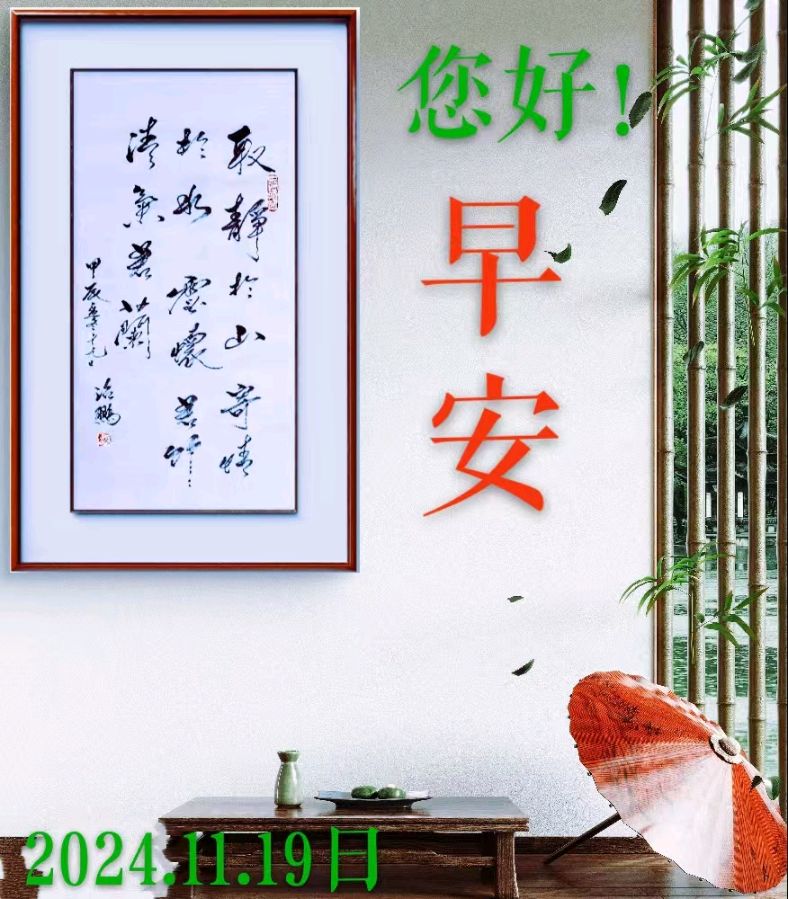 您好!
早安
取静於山寄情
於水虚怀若竹
清气若兰
甲辰冬十九日
治鹏
2024.11.19日